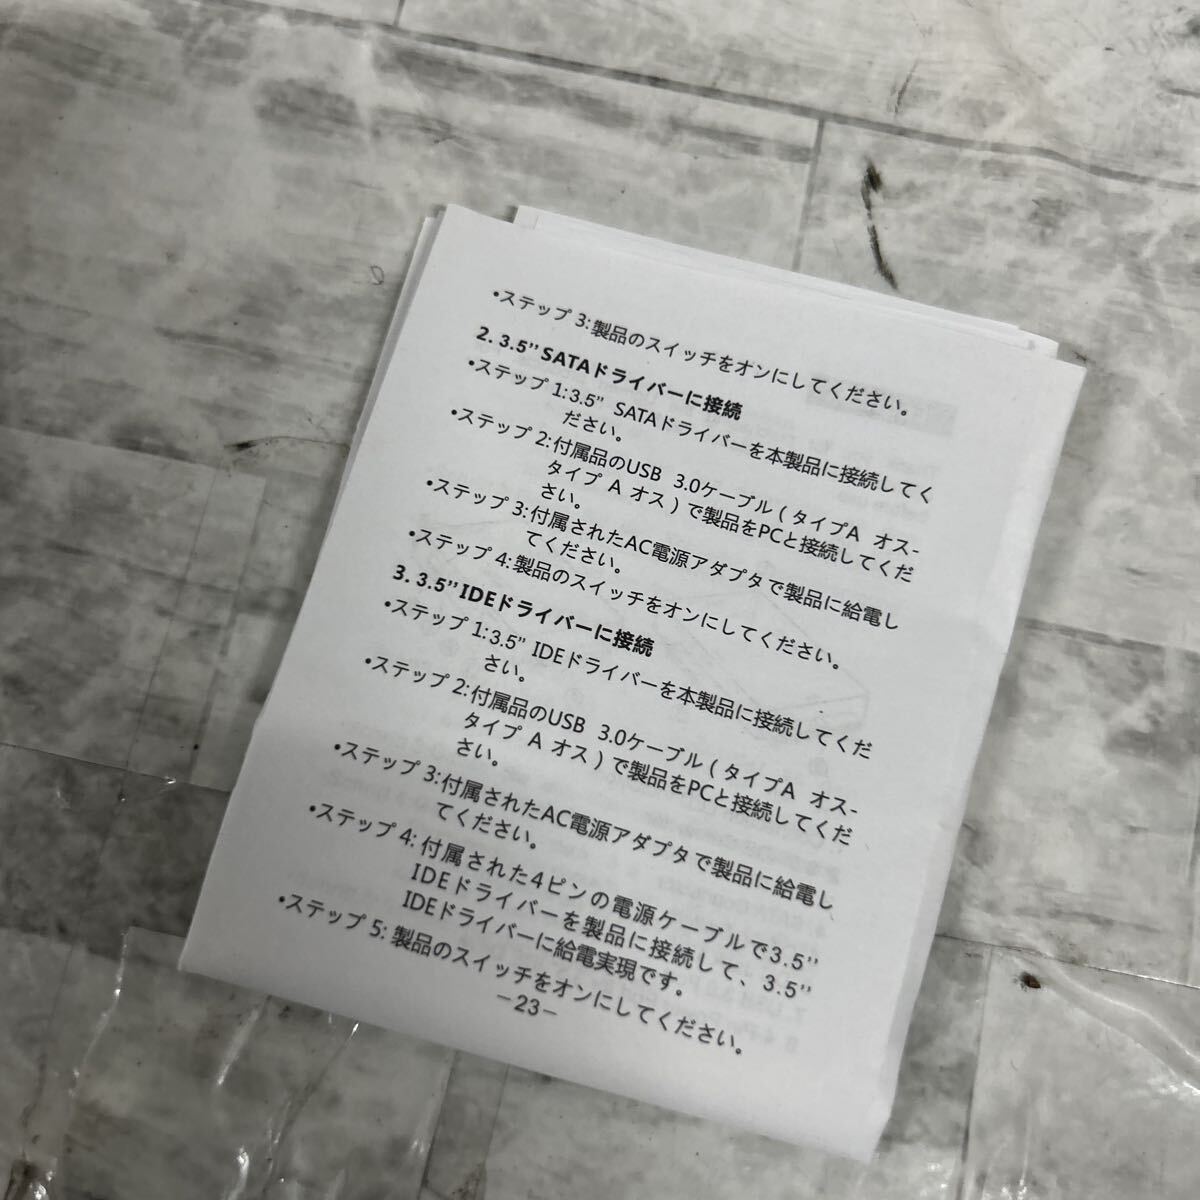 •ステップ 3:製品のスイッチをオンにしてください。
2. 3.5''SATAドライバーに接続
•ステップ 1:3.5'' SATAドライバーを本製品に接続してく
ださい。
•ステップ 2:付属品のUSB 3.0ケーブル（タイプA オス-
タイプ A オス）で製品をPCと接続してくだ
さい。
•ステップ 3:付属されたAC電源アダプタで製品に給電し
てください。
•ステップ 4:製品のスイッチをオンにしてください。
3. 3.5''IDEドライバーに接続
•ステップ 1:3.5'' IDEドライバーを本製品に接続してくだ
さい。
•ステップ 2:付属品のUSB 3.0ケーブル（タイプA オス-
タイプ A オス）で製品をPCと接続してくだ
さい。
•ステップ 3:付属されたAC電源アダプタで製品に給電し
てください。
•ステップ 4: 付属された4ピンの電源ケーブルで3.5''
IDEドライバーを製品に接続して、3.5''
IDEドライバーに給電実現です。
•ステップ 5: 製品のスイッチをオンにしてください。
－23－